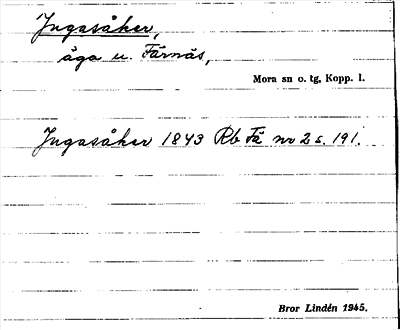 Ingasåker,
äga u. Färnäs,
Mora sn o. tg, Kopp. l.
Ingasåker 1843 Rb Fä nr 2 s. 191.
Bror Lindén 1945.